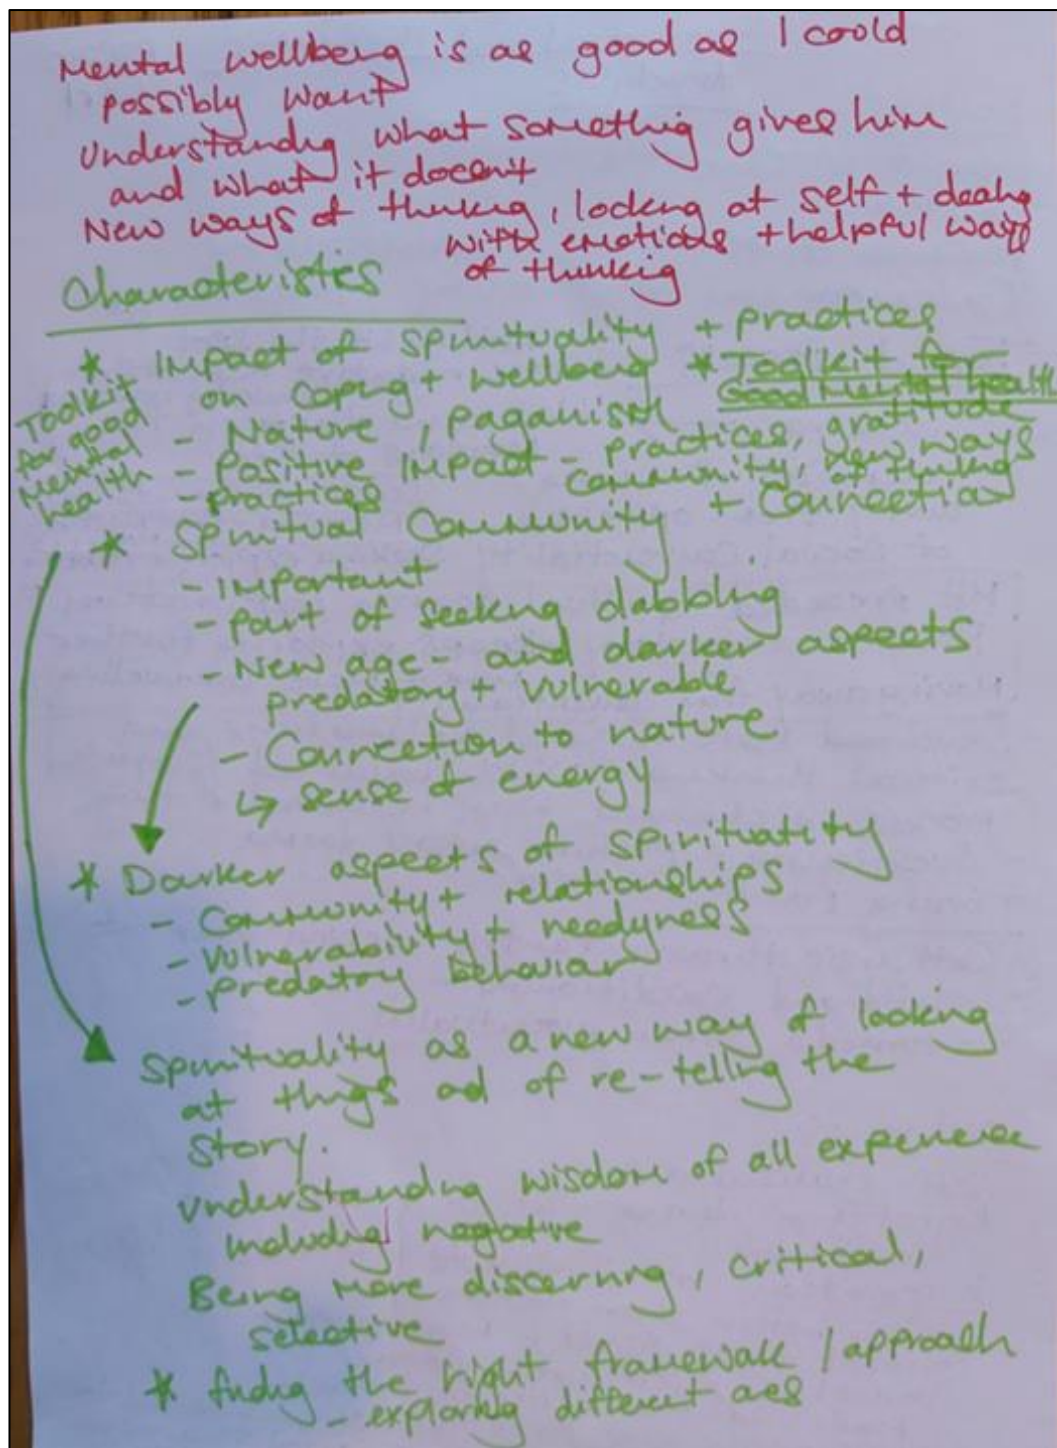 Mental wellbeing is as good as I could
possibly want
Understanding what something gives him
and what it doesn't
New ways of thinking, looking at self + dealing
with emotions + helpful ways
of thinking
Characteristics
* Impact of spirituality + practices
on coping + wellbeing * Toolkit for
Good Mental health
Toolkit
for good
Mental
health
- Nature, paganism
- Positive impact - practices, gratitude
community, new ways
of thinking
- practices
* Spiritual Community + Connection
- Important
- part of seeking dabbling
- New age - and darker aspects
predatory + vulnerable
- Connection to nature
↳ sense of energy
* Darker aspects of spirituality
- Community + relationships
- Vulnerability + needyness
- predatory behaviar
Spirituality as a new way of looking
at things ad of re-telling the
story.
Understanding wisdom of all experience
including negative
Being more discerning, critical,
selective
* finding the right framework / approach
- exploring different oes